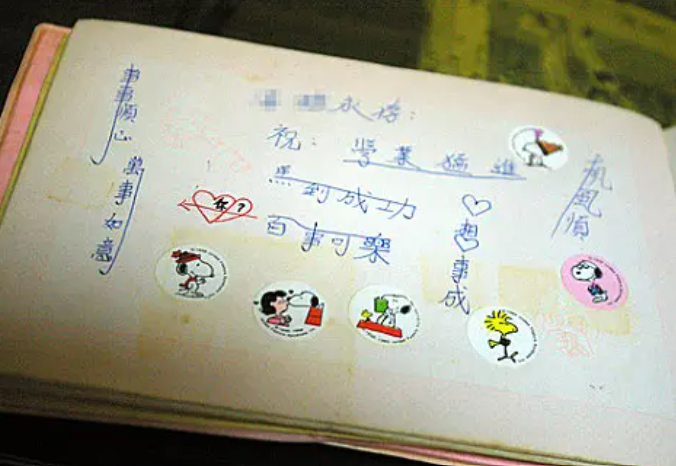 事事順心
萬事如意
永存:
祝: 學業猛進
馬到成功
百事可樂
♡想♡事成
帆風順